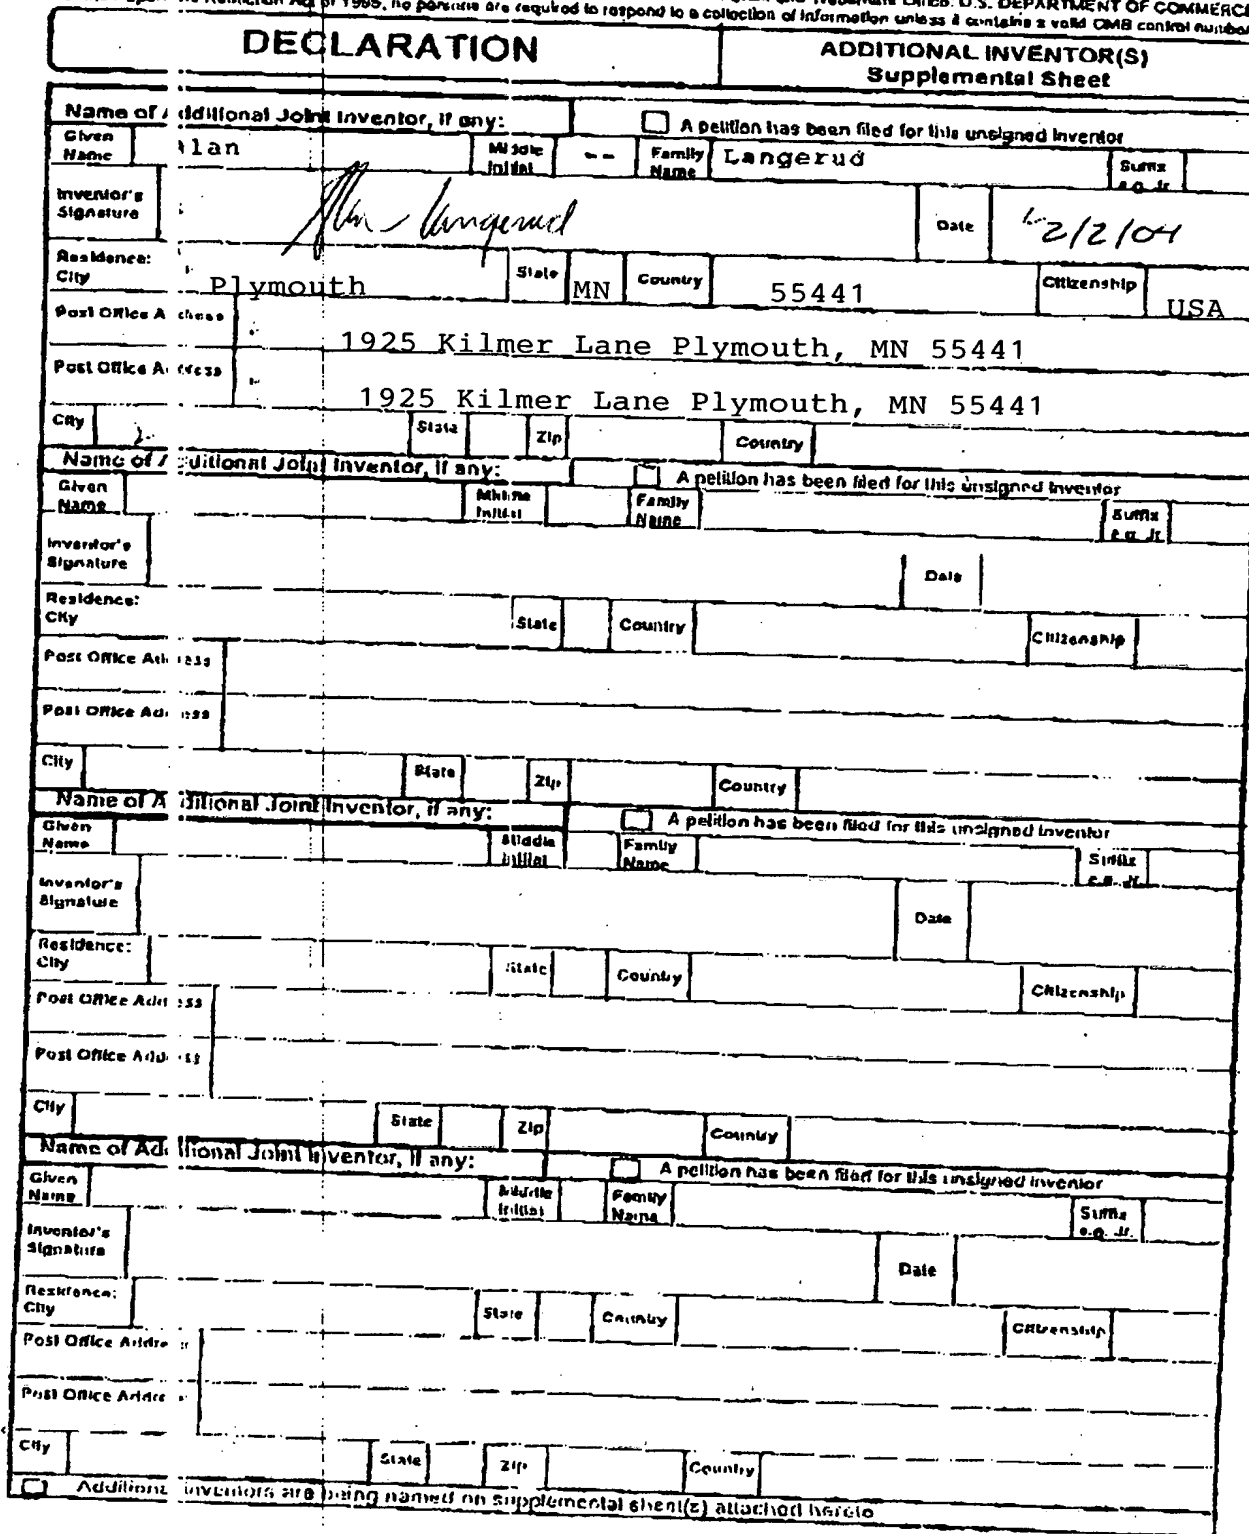 Act of 1995, no persons are required to respond to a collection of information unless it contains a valid OMB control number
U.S. DEPARTMENT OF COMMERCE
DECLARATION
ADDITIONAL INVENTOR(S)
Supplemental Sheet
Name of Additional Joint Inventor, if any:
A petition has been filed for this unsigned inventor
Given Name
lan
Middle Initial
--
Family Name
Langerud
Suffix e.g. Jr.
Inventor's Signature
Alan Langerud
Date
2/2/04
Residence: City
Plymouth
State
MN
Country
55441
Citizenship
USA
Post Office Address
1925 Kilmer Lane Plymouth, MN 55441
Post Office Address
1925 Kilmer Lane Plymouth, MN 55441
City
State
Zip
Country
Name of Additional Joint Inventor, if any:
A petition has been filed for this unsigned inventor
Given Name
Middle Initial
Family Name
Suffix e.g. Jr
Inventor's Signature
Date
Residence: City
State
Country
Citizenship
Post Office Address
Post Office Address
City
State
Zip
Country
Name of Additional Joint Inventor, if any:
A petition has been filed for this unsigned inventor
Given Name
Middle Initial
Family Name
Suffix e.g. Jr.
Inventor's Signature
Date
Residence: City
State
Country
Citizenship
Post Office Address
Post Office Address
City
State
Zip
Country
Name of Additional Joint Inventor, if any:
A petition has been filed for this unsigned inventor
Given Name
Middle Initial
Family Name
Suffix e.g. Jr.
Inventor's Signature
Date
Residence: City
State
Country
Citizenship
Post Office Address
Post Office Address
City
State
Zip
Country
Additional inventors are being named on supplemental sheet(s) attached hereto